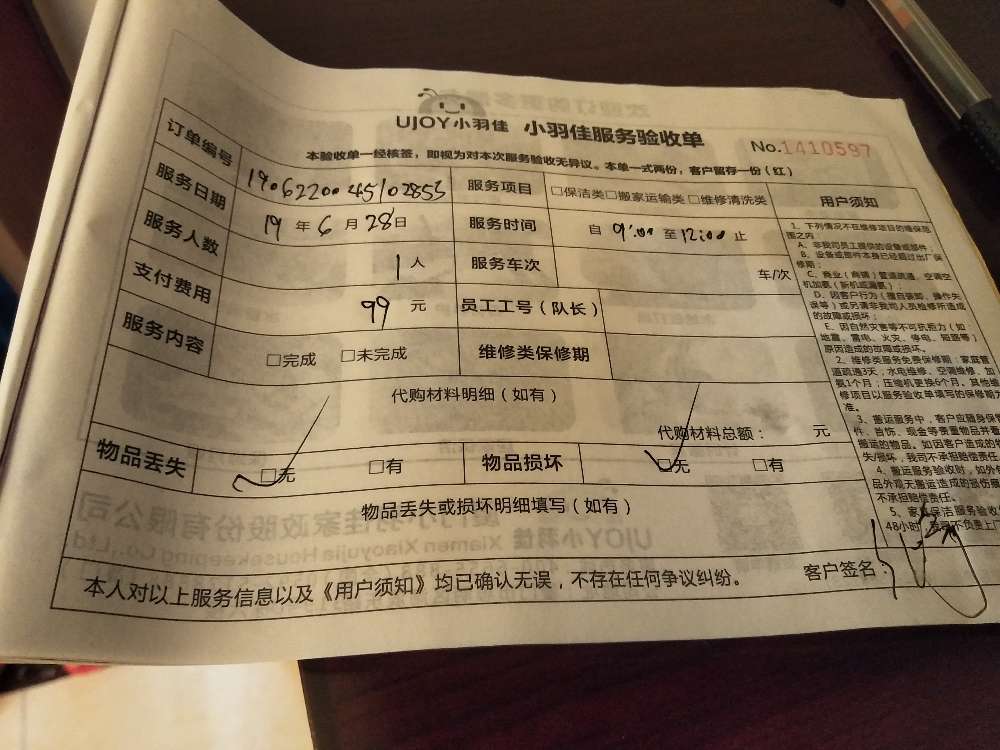 UJOY小羽佳 小羽佳服务验收单
No.1410597
本验收单一经核签，即视为对本次服务验收无异议。本单一式两份，客户留存一份（红）
订单编号 19062200 45102855 服务项目 □保洁类□搬家运输类□维修清洗类 用户须知
服务日期 19 年 6 月 28 日 服务时间 自 9:00 至 12:00 止
服务人数 1 人 服务车次 车/次
支付费用 99 元 员工工号（队长）
服务内容 □完成 □未完成 维修类保修期
代购材料明细（如有）
代购材料总额： 元
物品丢失 □无 □有 物品损坏 □无 □有
物品丢失或损坏明细填写（如有）
本人对以上服务信息以及《用户须知》均已确认无误，不存在任何争议纠纷。 客户签名：
1、下列情况不在维修项目的维保范
围之内
A、非我司员工提供的设备或部件；
B、设备或部件本身已经超过出厂保
修期；
C、商业（商铺）管道疏通，空调空
机加氨（新机或漏氨）；
D、因客户行为（擅自装卸、操作失
误等）或另请非我司人员检修所造成
的故障或损坏；
E、因自然灾害等不可抗拒力（如
地震、雷电、火灾、停电、短路等）
原因造成的故障或损坏。
2、维修类服务免费保修期：家庭管
道疏通3天，水电维修、空调维修、加
氨1个月；压缩机更换6个月。其他维
修项目以服务验收单填写的保修期为
准。
3、搬运服务中，客户应随身保管
件、首饰、现金等贵重物品并看
搬运的物品。如因客户造成的
失/损坏，我司不承担赔偿责任。
4、搬运服务验收时，如外包
品外观无搬运造成的损伤痕
不承担赔偿责任。
5、家具保洁服务验收
48小时，我司不负责上门